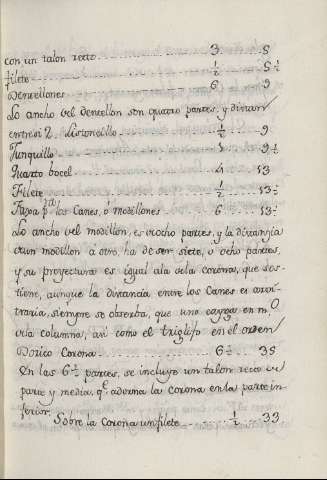 con un talon recto ........ 3 .... 5
filete ........ ½ .... 5½
Dentellones ........ 6 .... 9
Lo ancho del dentellon son quatro partes, y distan
entre si 2. Listoncillo ........ ½ .... 9
Junquillo ........ 1 .... 9½
Quarto bocel ........ 4 .... 13
Filete ........ ½ .... 13½
Fapa pᵃ los Canes, ó modillones ........ 6 .... 13½
Lo ancho del modillon, es diocho partes, y la distanzia
de un modillon á otro, ha de ser siete, ú ocho partes,
y su proyectura es igual ala dela corona, que sos-
tiene, aunque la distancia entre los Canes es arvi-
traria, siempre se observa, que uno cayga en m.º
dela columna, asi como el triglifo en el orden
Dorico Corona ........ 6½ .... 35
En las 6½ partes, se incluye un talon recto de
parte y media, q.ᵉ adorna la corona en la parte in-
ferior.
Sobre la Corona un filete ........ ½ .... 33